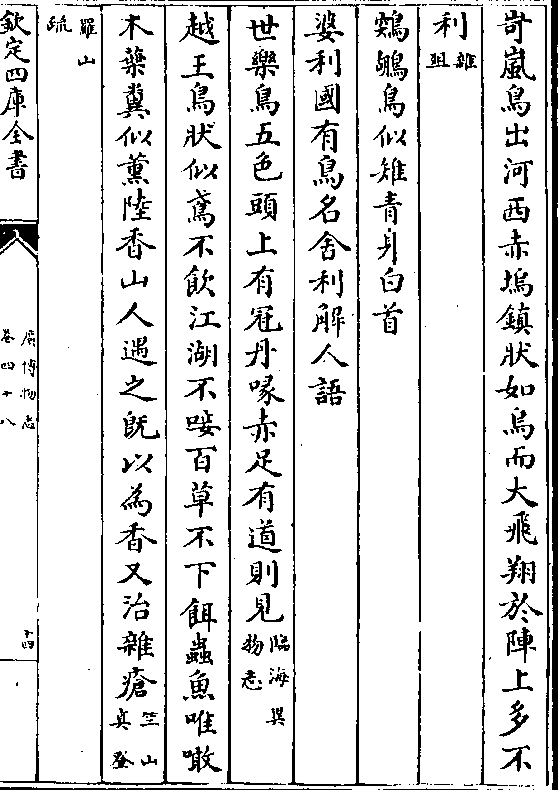 岢嵐鳥出河西赤塢鎮狀如烏而大飛翔於陣上多不
利雜俎
鵎鵃鳥似雉青身白首
婆利國有鳥名舍利解人語
世樂鳥五色頭上有冠丹喙赤足有道則見臨海異物志
越王鳥狀似鳶不飲江湖不唼百草不下餌蟲魚唯噉
木葉糞似薰陸香山人遇之既以為香又治雜瘡竺真登山
羅山疏
欽定四庫全書
廣博物志
卷四十八
十四